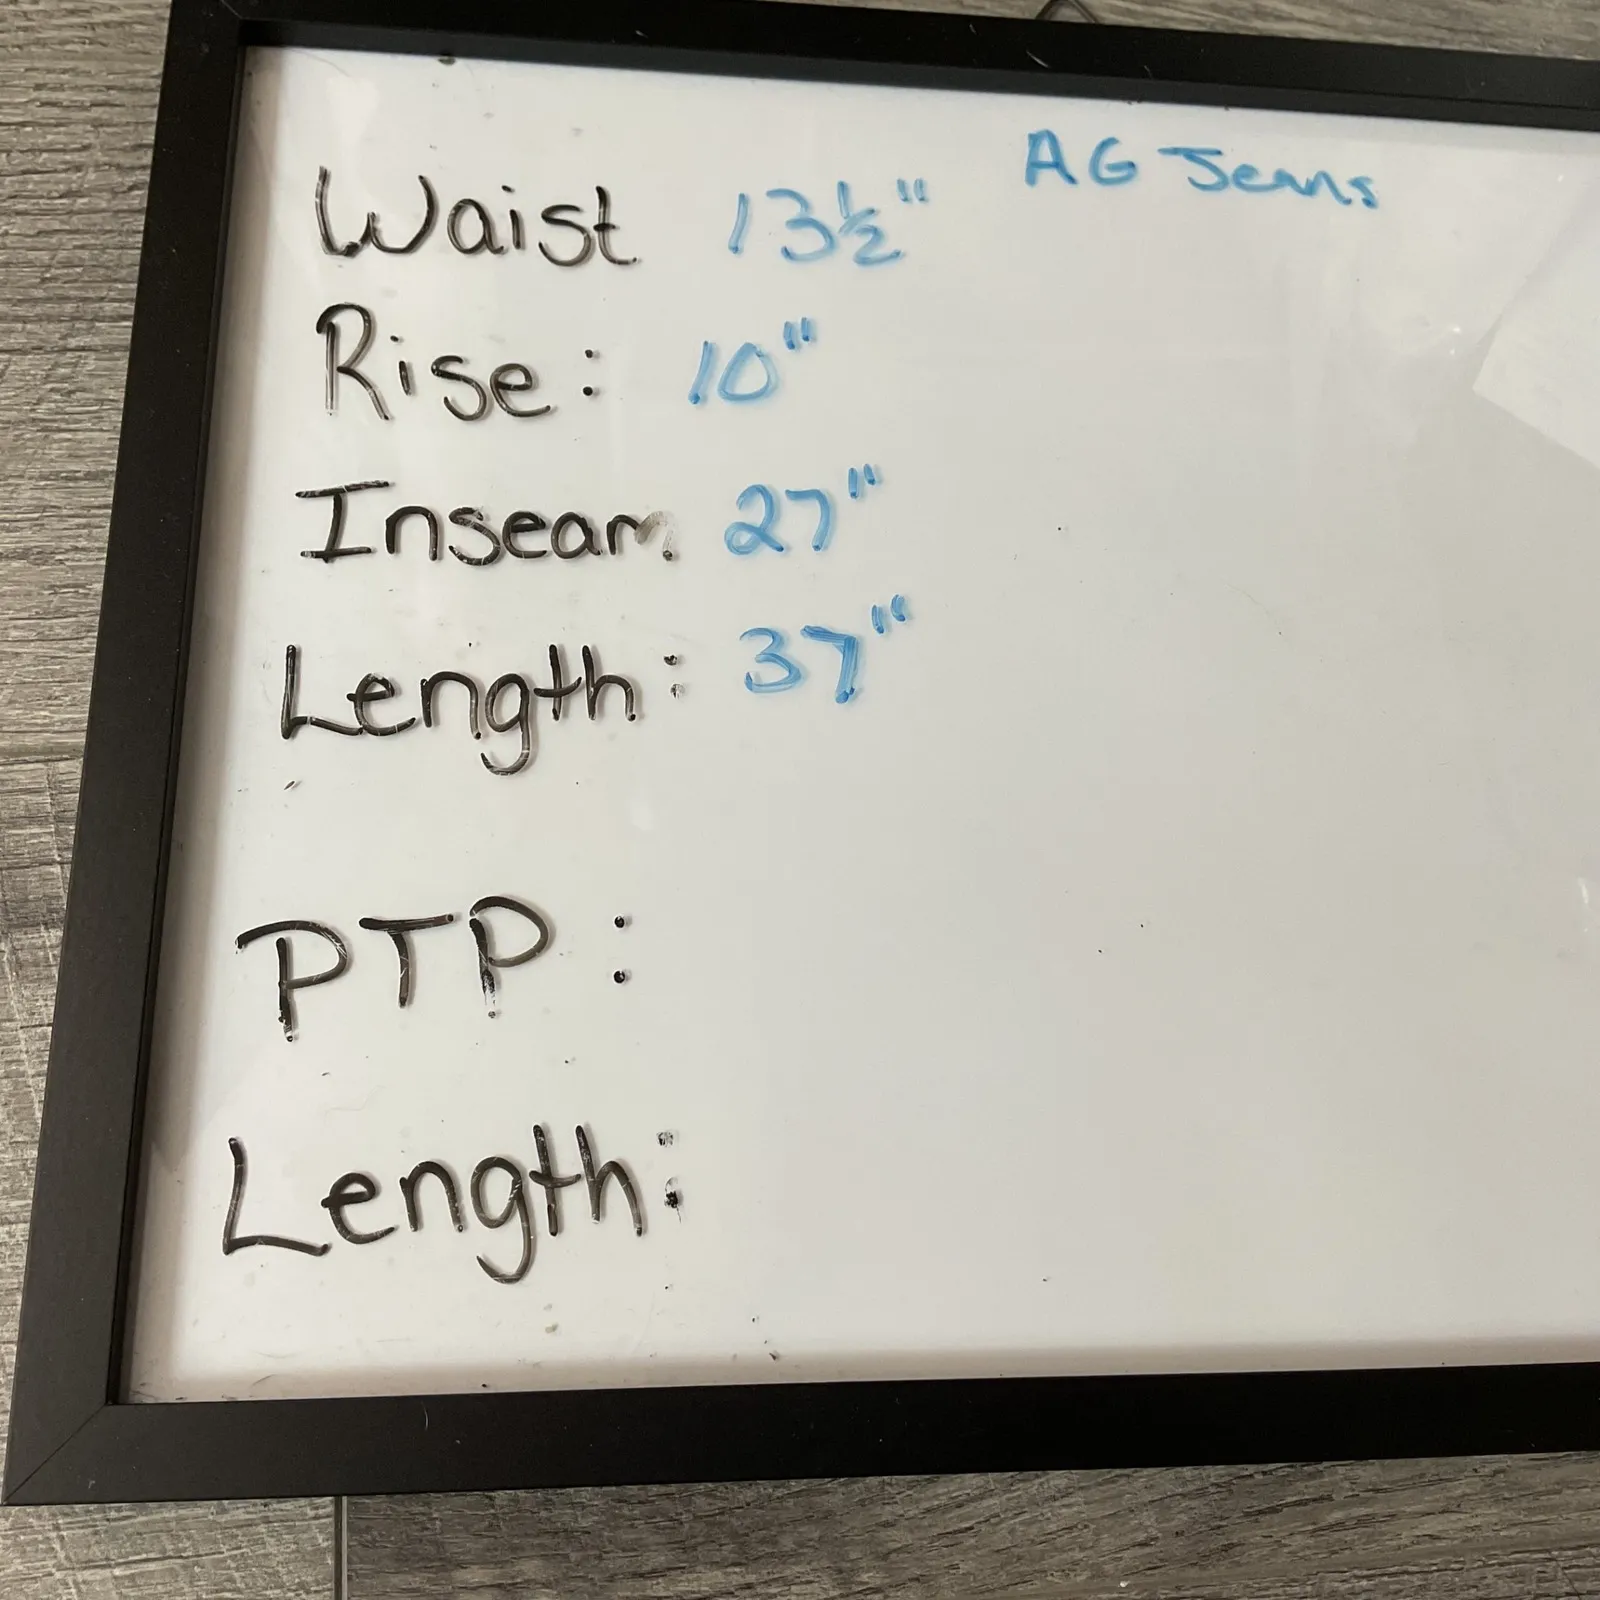 AG Jeans
Waist 13½"
Rise: 10"
Inseam 27"
Length: 37"
PTP:
Length: